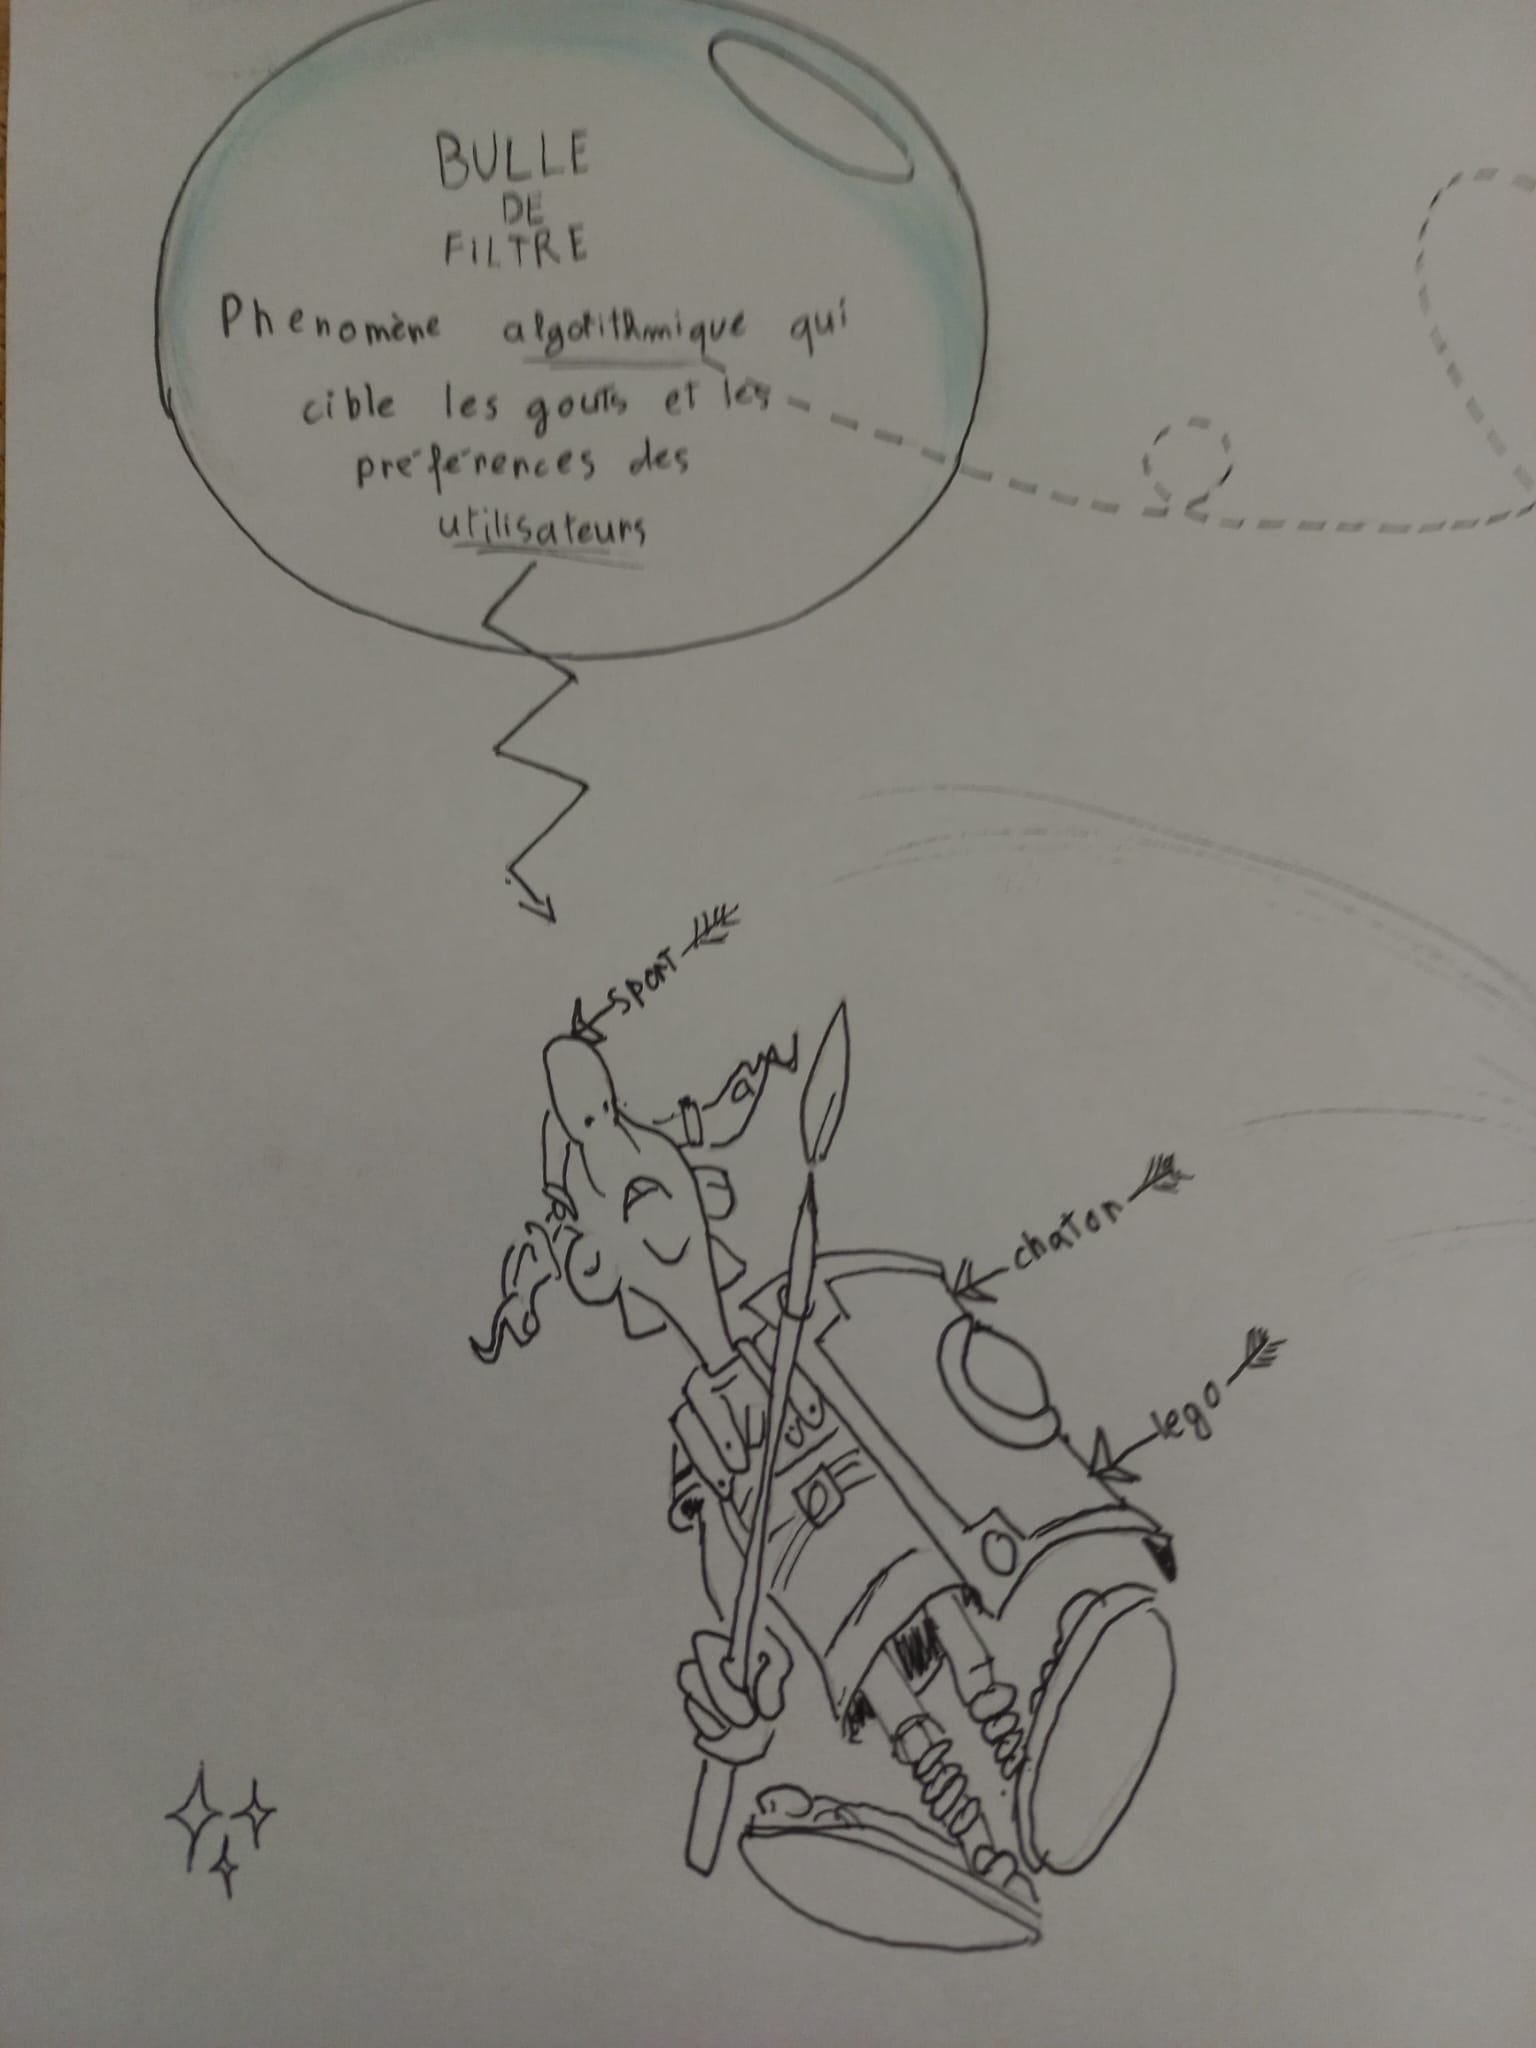 BULLE
DE
FILTRE
Phenomène algorithmique qui
cible les gouts et les
préférences des
utilisateurs
sport
chaton
lego